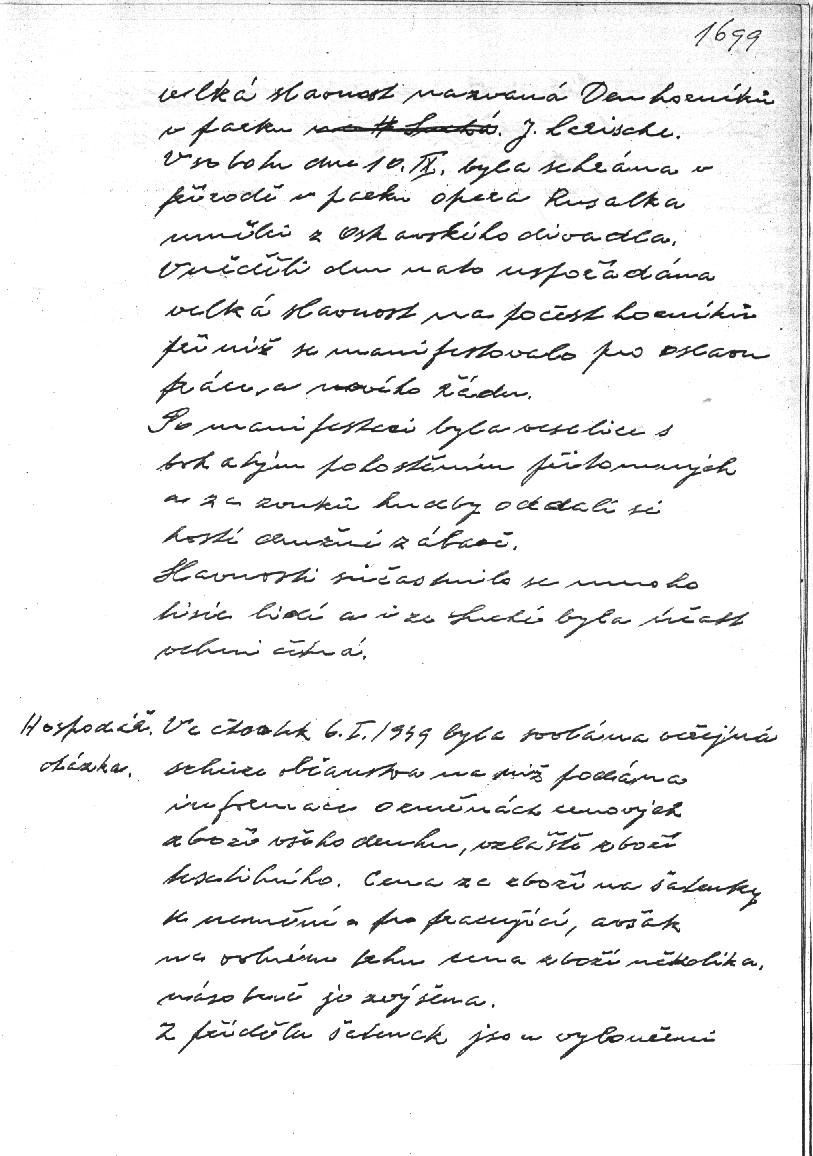 1699
velká slavnost nazvaná Den horníků
v parku ve H Suché. J. Larische.
V sobotu dne 10. IX. byla sehrána v
přírodě v parku opera Rusalka
umělci z Ostravského divadla.
V neděli den nato uspořádána
velká slavnost na počest horníků
při níž se manifestovalo pro oslavu
práce, a nového řádu.
Po manifestaci byla veselice s
bohatým pohoštěním přítomných
a za zvuků hudby oddali se
hosté družné zábavě.
Slavnosti súčastnilo se mnoho
tisíc lidí a i ze Suché byla účast
velmi četná.
Hospodář. Ve čtvrtek 6. I. 1949 byla svolána veřejná
otázka. schůze občanstva na níž podána
informace o změnách cenových
zboží všeho druhu, zvláště zboží
textilního. Cena za zboží na šatenky
se nemění pro pracující, avšak
na volném trhu cena zboží několika.
násobně je zvýšena.
Z přídělu šatenek jsou vyloučeni